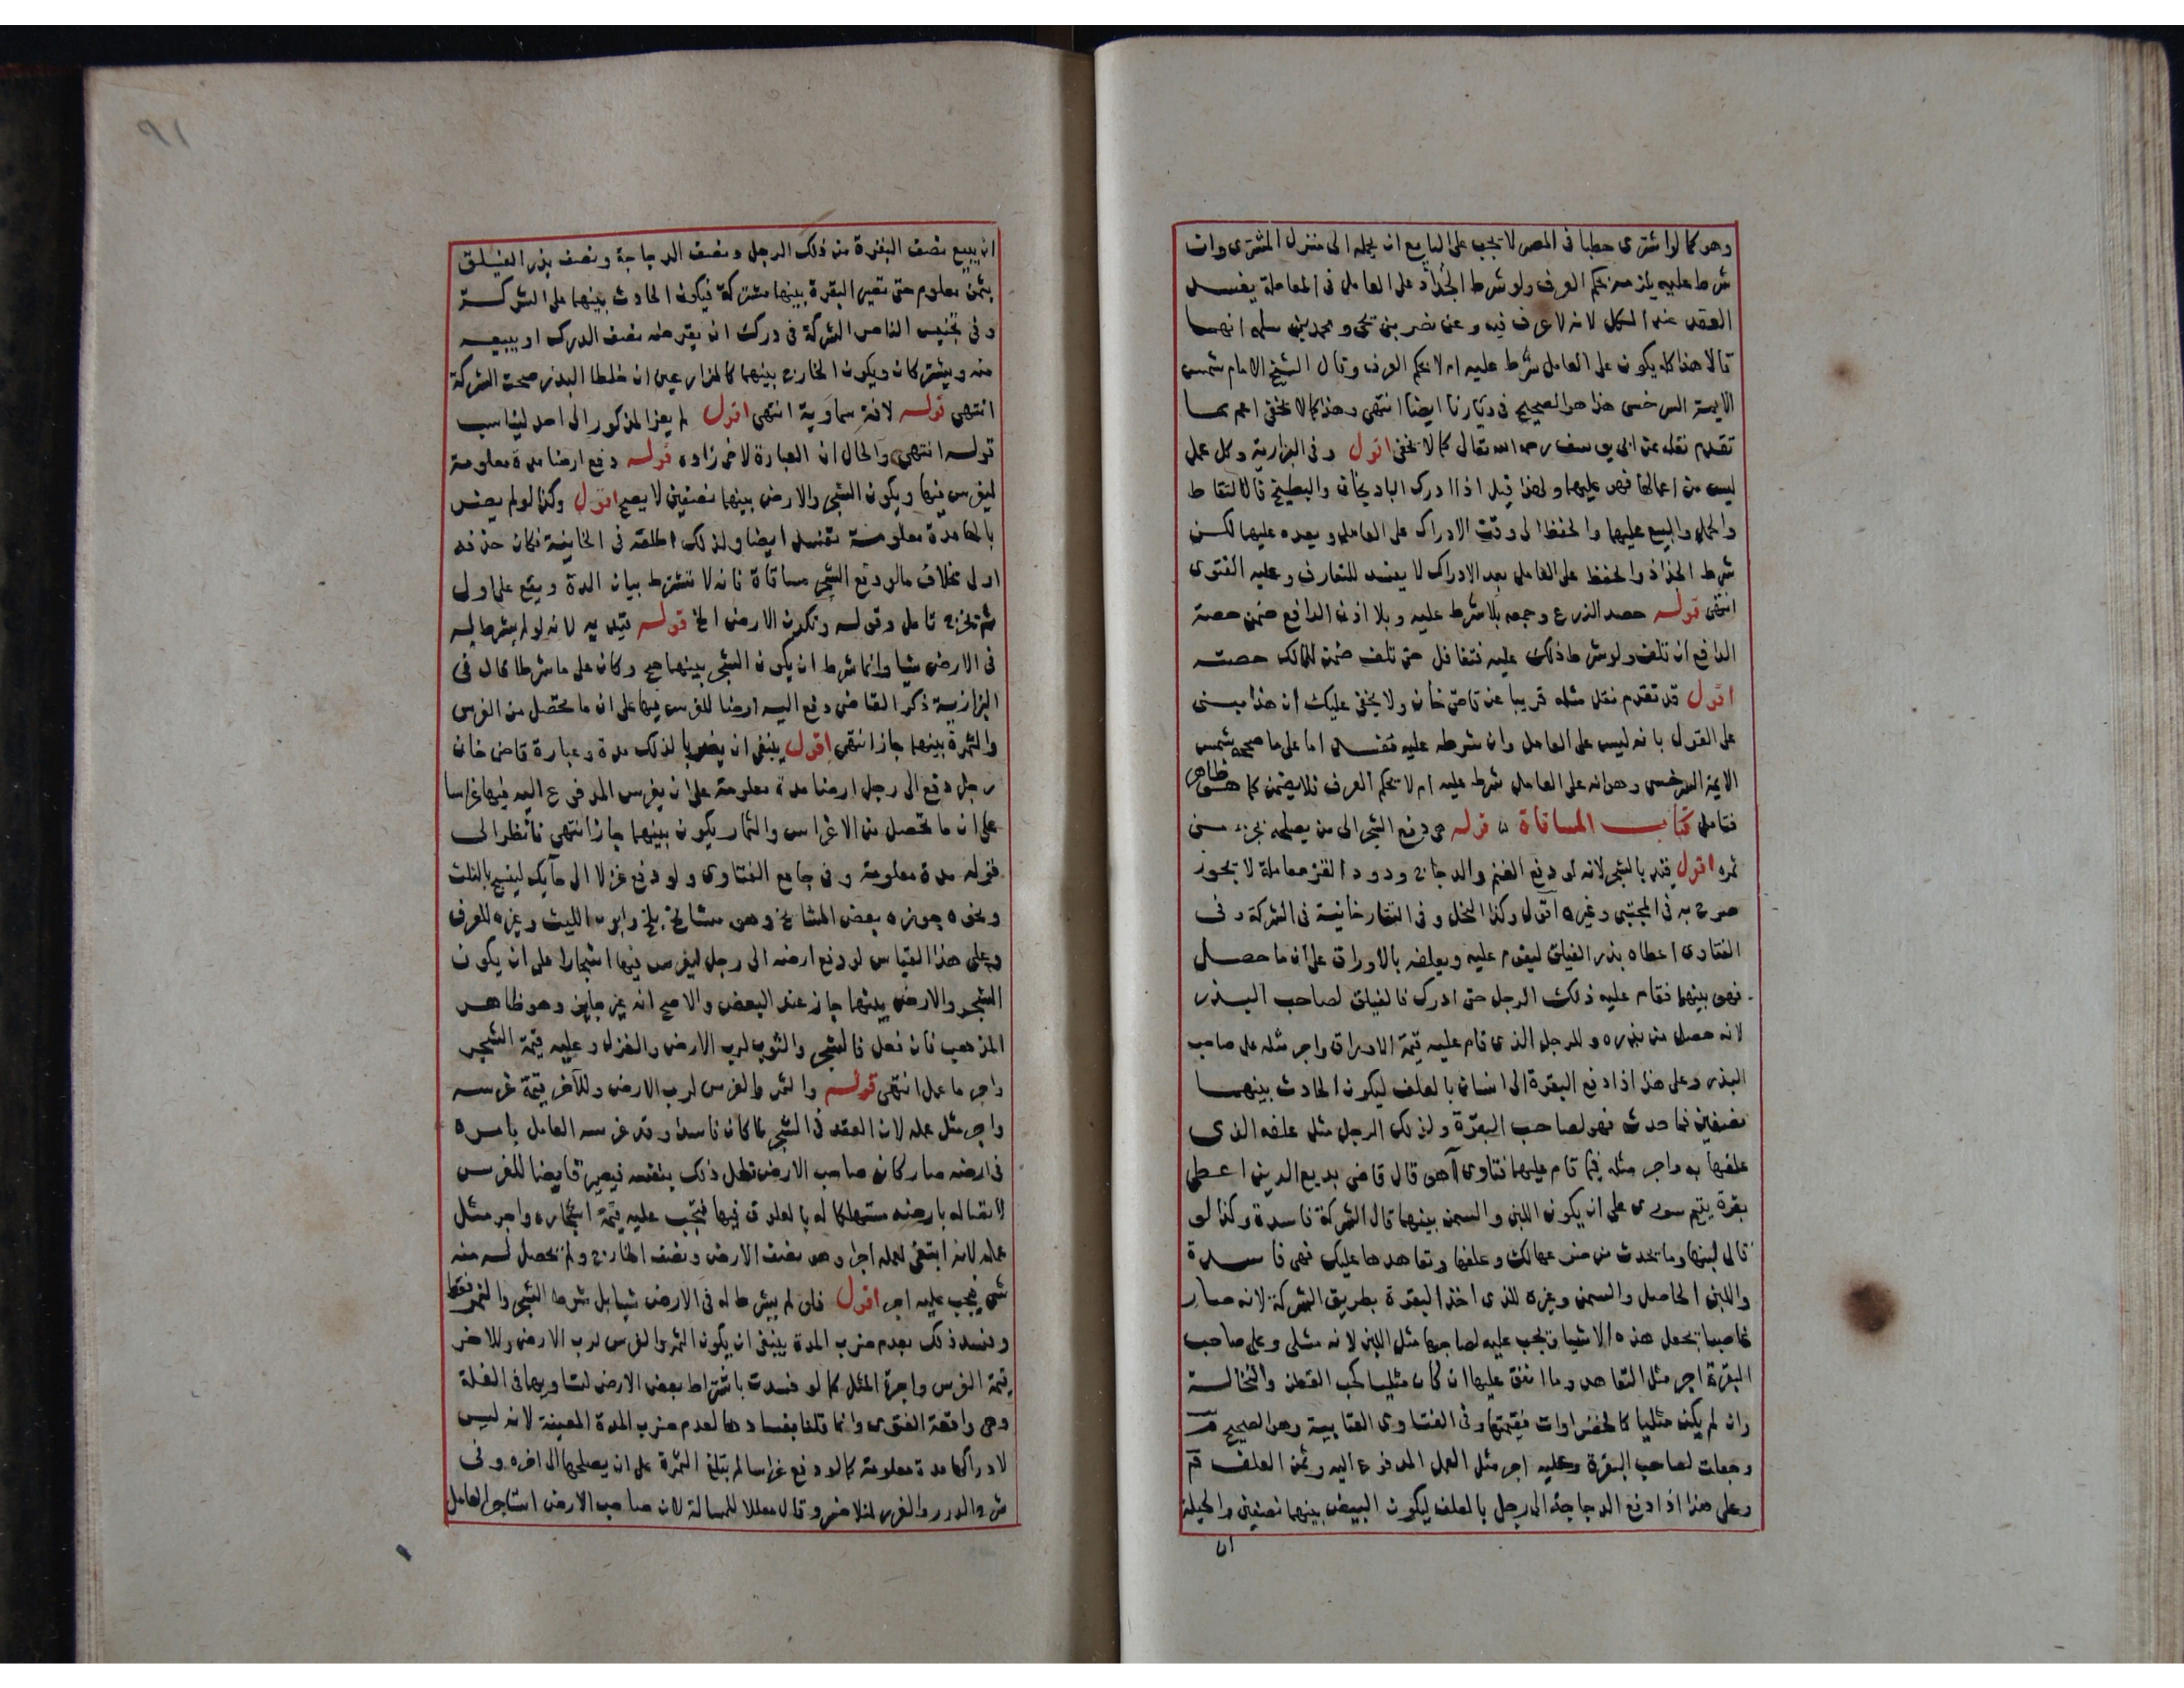 وهو كما لو اشترى حطبا في المصر لا تجب على البايع ان يحمله الى منزل المشترى وان
شرط عليه يلزمه بحكم العرف ولو شرط الجذاذ على العامل في المعاملة يفسد
العقد عند الكل لانه لا عرف فيه وعن نصر بن يحيى ومحمد بن سلمه انهما
قالا هذا كله يكون على العامل شرط عليه ام لا بحكم العرف وقال الشيخ الامام شمس
الايمة السرخسى هذا هو الصحيح في ديارنا ايضا انتهى وهذا كما لا يخفى اعم مما
تقدم نقله عن ابى يوسف رحمه الله تعالى كما لا يخفى اقول وفى البزازية وكل عمل
ليس من اعمالها فهو عليهما ولهذا قيل اذا ادرك الباذنجان والبطيخ فالالتقاط
والحمل والبيع عليهما والحفظ الى وقت الادراك على العامل وبعده عليهما لكن
شرط الجذاذ والحفظ على العامل بعد الادراك لا يفسد للتعارف وعليه الفتوى
انتهى قوله حصد الزرع وجمعه بلا شرط عليه وبلا اذن الدافع ضمن حصة
الدافع ان تلف ولو شرط ذلك عليه فتغافل حتى تلف ضمن للمالك حصته
اقول قد تقدم نقل مثله قريبا عن قاضى خان ولا يخفى عليك ان هذا مبنى
على القول بانه ليس على العامل وان شرطه عليه مفسد اما على ما صححه شمس
الايمة السرخسى وهو انه على العامل شرط عليه ام لا بحكم العرف فلا يضمن كما هو ظاهر
فتامل كتاب المساقاة قوله هى دفع الشجر الى من يصلحه بجزء من
ثمره اقول قيد بالشجر لانه لو دفع الغنم والدجاج ودود القز معاملة لا يجوز
صرح به في المجتبى وغيره اقول وكذا النحل وفى التتارخانية في الشركة وفى
الفتاوى اعطاه بذر الفيلق ليقوم عليه ويعلفه بالاوراق على ان ما حصل
فهو بينهما فقام عليه ذلك الرجل حتى ادرك فالفيلق لصاحب البذر
لانه حصل من بذره وللرجل الذى قام عليه قيمة الاوراق واجر مثله على صاحب
البذر وعلى هذا اذا دفع البقرة الى انسان بالعلف ليكون الحادث بينهما
نصفين فما حدث فهو لصاحب البقرة ولذلك الرجل مثل علفه الذى
علفها به واجر مثله فيما قام عليها فتاوى آهو قال قاضى بديع الدين اعطى
بقرة على ان يكون اللبن والسمن بينهما قال الشركة فاسدة وكذا لو
قال لبنها وما يحدث من ضرعها لك وعلفها وتعاهدها عليك فهى فاسدة
واللبن الحاصل والسمن وغيره للذى اخذ البقرة بطريق الشركة لانه صار
غاصبا بجعل هذه الاشيا وتجب عليه لصاحبها مثل اللبن لانه مثلى وعلى صاحب
البقرة اجر مثل التعاهد وما انفق عليها ان كان مثليا كحب القطن والنخالة
وان لم يكن مثليا كالخضراوات فقيمتها وفى الفتاوى العتابية وهو الصحيح
وجعلت لصاحب البقرة وعليه اجر مثل العمل المدفوع اليه وثمن العلف
وعلى هذا اذا دفع الدجاجة الى رجل بالعلف ليكون البيض بينهما نصفين والحيلة
ان
٩١
ان يبيع نصف البقرة من ذلك الرجل ونصف الدجاجة ونصف بذر الفيلق
بثمن معلوم حتى تصير البقرة بينهما مشتركة فيكون الحادث بينهما على الشركة
وفى تجنيس الناصر الشركة في درك ان يقرضه نصف الدرك او يبيعه
منه ويشتركان ويكون الخارج بينهما كالمزارعين ان خلطا البذر صحت الشركة
انتهى قوله لانه سماوية انتهى اقول لم يعز المذكور الى احد ليناسب
قوله انتهى والحال ان العبارة لاخى زاده قوله دفع ارضا مدة معلومة
ليغرس فيها ويكون الشجر والارض بينهما نصفين لا يصح اقول وكذا لو لم يضرب
بالها مدة معلومة تفسد ايضا ولذلك اطلقه في الخانية فكان حذفه
اولى بخلاف ما لو دفع الشجر مساقاة فانه لا تشترط بيان المدة ويقع على اول
ثمر تخرج تامل وقوله وتكون الارض الخ قوله قيد به لانه لو لم يشرط له
في الارض شيا وانما شرط ان يكون الشجر بينهما صح وكان على ما شرطا قال في
البزازية ذكر القاضى دفع اليه ارضا للغرس فيها على ان ما يحصل من الغرس
والثمرة بينهما جاز انتهى اقول ينبغى ان يضربا لذلك مدة وعبارة قاضى خان
رجل دفع الى رجل ارضا مدة معلومة على ان يغرس المدفوع اليه فيها غراسا
على ان ما تحصل من الاغراس والثمار يكون بينهما جاز انتهى فانظر الى
قوله مدة معلومة وفى جامع الفتاوى ولو دفع غزلا الى حايك لينسج بالثلث
ونحوه جوزه بعض المشايخ وهو مشايخ بلخ وابو الليث وغيره للعرف
وعلى هذا القياس لو دفع ارضه الى رجل ليغرس فيها اشجارا على ان يكون
الشجر والارض بينهما جاز عند البعض والاصح انه غير جايز وهو ظاهر
المذهب فان فعل فالشجر والثوب لرب الارض والغزل وعليه قيمة الشجر
واجر ما عمل انتهى قوله والثمر والغرس لرب الارض وللآخر قيمة غرسه
واجر مثل عمله لان العقد في الشجر لما كان فاسدا وقد غرسه العامل بامره
في ارضه صار كان صاحب الارض فعل ذلك بنفسه فيصير قابضا للغرس
لاتصاله بارضه مستهلكا له بالعلوق فيها فتجب عليه قيمة اشجاره واجر مثل
عمله لانه ابتغى لعمله اجرا وهو نصف الارض ونصف الخارج ولم يحصل له منه
شى فيجب عليه اجر اقول فلو لم يشرط له في الارض شيا بل شرط الشجر والثمر فقط
وفسد ذلك بعدم ضرب المدة ينبغى ان يكون الثمر والغرس لرب الارض وللاخر
قيمة الغرس واجرة المثل كما لو فسدت باشتراط بعض الارض لتساويهما في العلة
وهى واقعة الفتوى وانما قلنا بفسادها لعدم ضرب المدة المعينة لانه ليس
لادراكها مدة معلومة كما لو دفع غراسا لم يبلغ الثمرة على ان يصلحها الى اخره وفى
شرح الدرر والغرر لمنلا خسرو قال معللا للمسالة لان صاحب الارض استاجر العامل